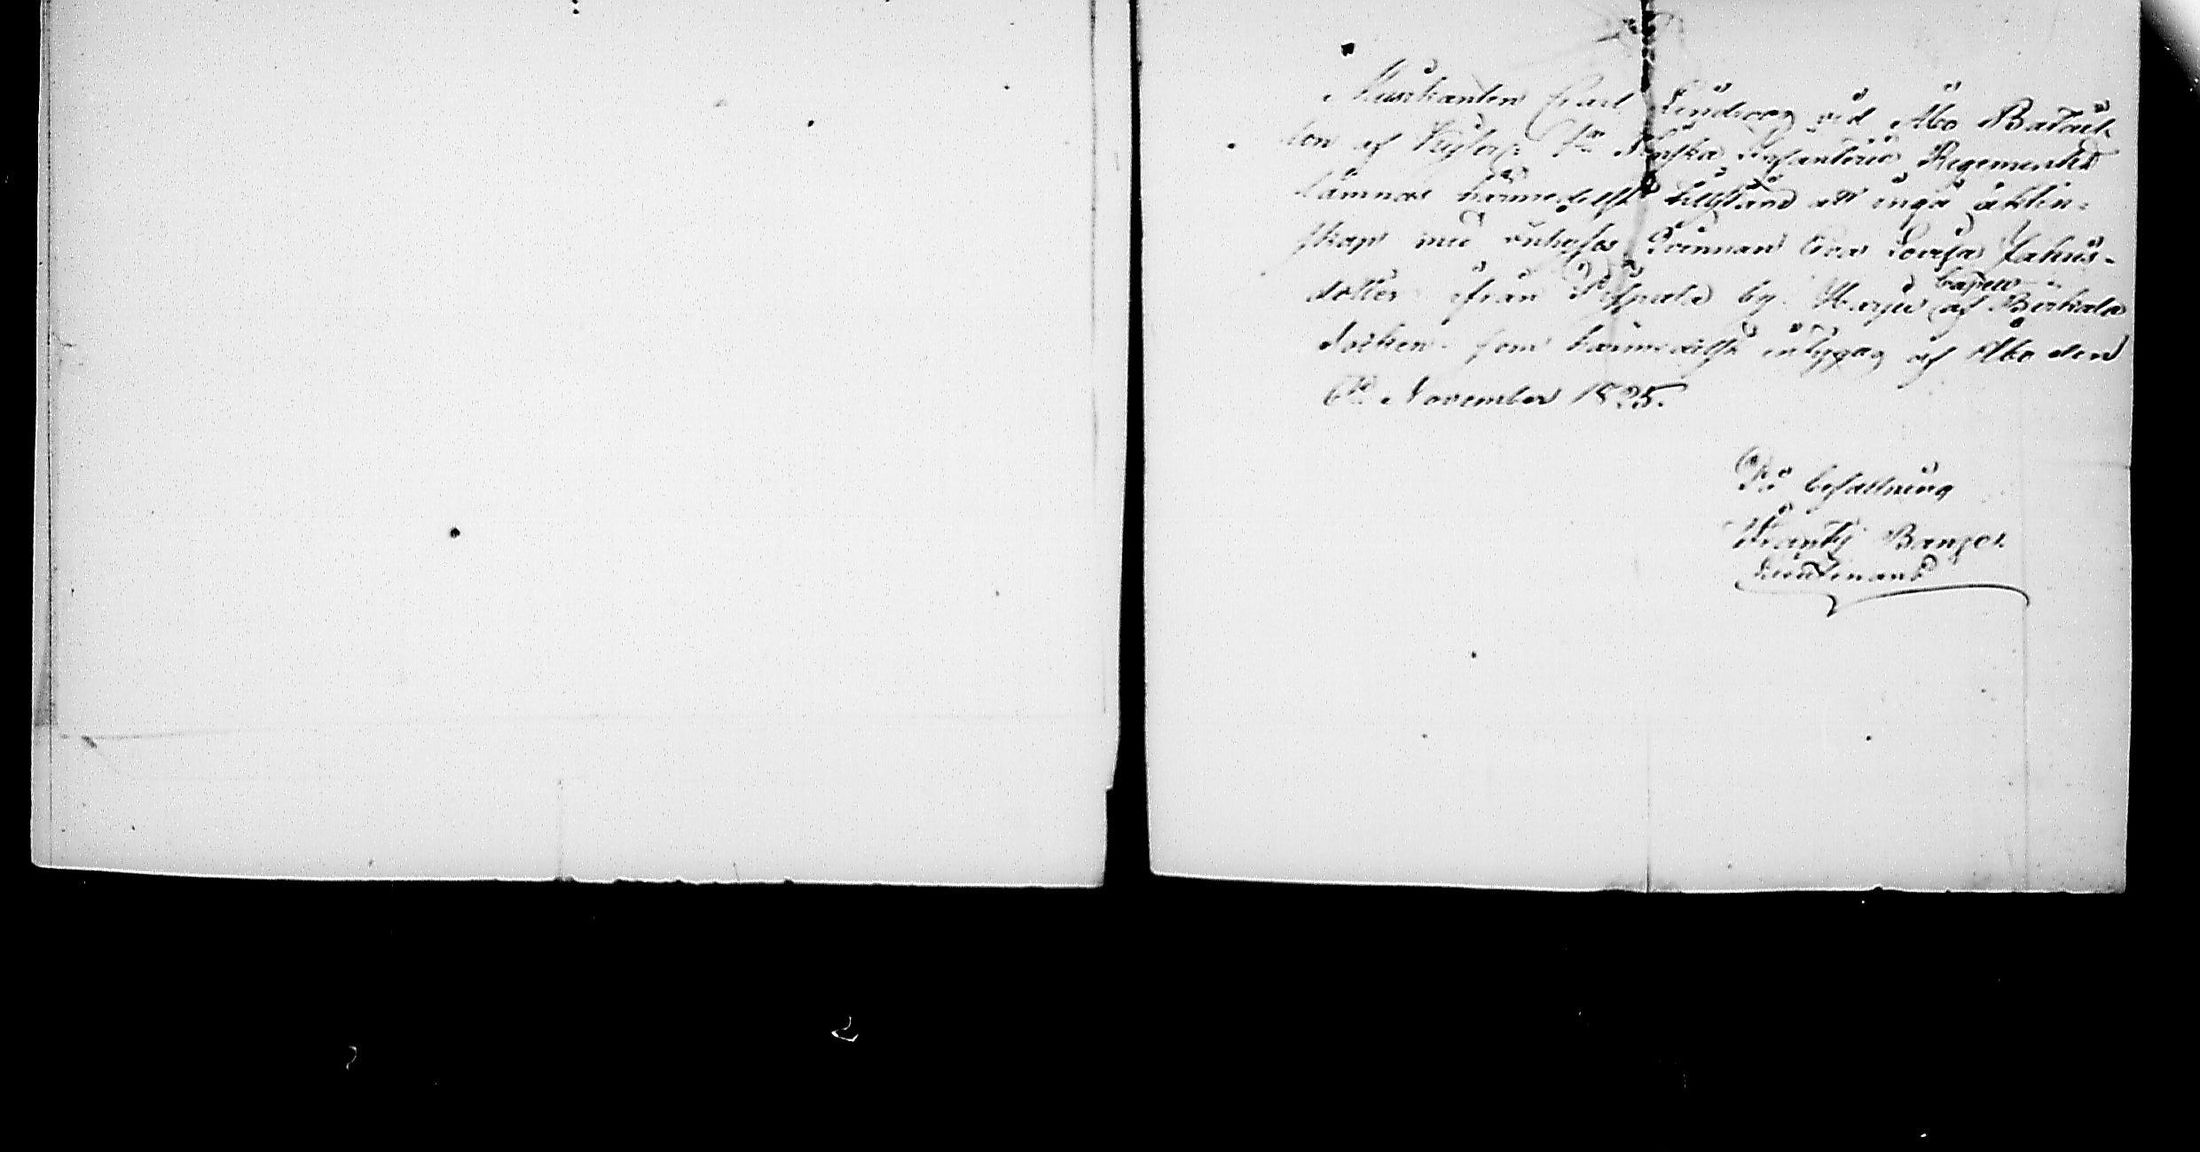 Musikanten Carl Lindberg vid Åbo Batail-
lon af 1sta Finska Infanterie Regementet
lämnas härmedelst tillstånd att ingå äkten-
skap med enkefo Qvinnan Eva Lovisa Jahns-
dotter ifrån Pispala by Harju Capell af Birkala
Socken som härmedelst intygas af Åbo den
6te November 1825.
På befallning
Frantz Banzer
Lieutenant